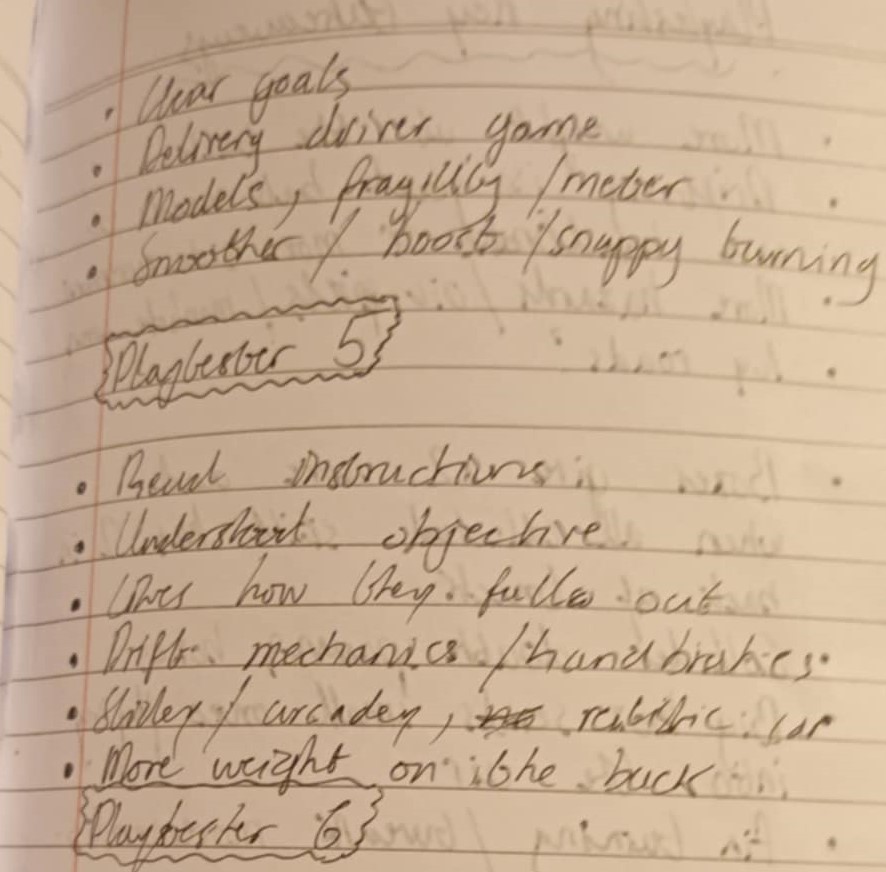 • Clear goals
• Delivery driver game
• Models, fragility / meter
• Smoother / boost / snappy turning
Playtester 5
• Read instructions
• Understood objective
• Likes how they fall out
• Drift mechanics / handbrakes
• Slidey / arcadey, realistic car
• More weight on the back
Playtester 6